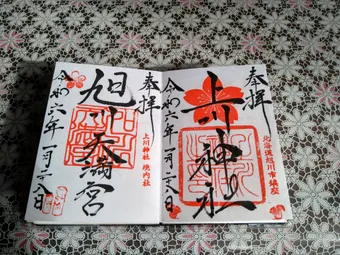 奉拝
上川神社
北海道旭川市鎮座
令和六年一月二八日
奉拝
旭川天満宮
上川神社 境内社
令和六年一月二八日